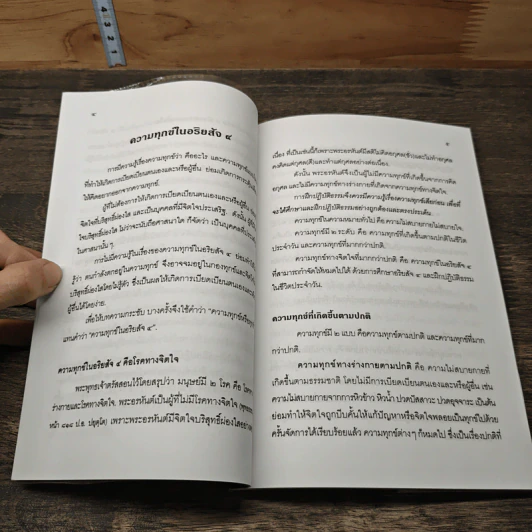 ๔
ความทุกข์ในอริยสัจ ๔
การมีความรู้เรื่องความทุกข์ว่า คืออะไร และความทุกข์
ที่ทำให้เกิดการเบียดเบียนตนเองและหรือผู้อื่น ย่อมเกิดการ
ให้คิดออกจากความทุกข์
ผู้ที่ไม่ต้องการให้เกิดการเบียดเบียนตนเองและหรือผู้อื่น
จิตใจที่บริสุทธิ์ผ่องใส และเป็นบุคคลที่มีจิตใจประเสริฐ ดังนั้น
จิตใจบริสุทธิ์ผ่องใส ไม่ว่าจะนับถือศาสนาใด ก็จัดว่า เป็นบุคคลที่
ในศาสนานั้น ๆ
การไม่มีความรู้ในเรื่องของความทุกข์ในอริยสัจ ๔ ย่อม
รู้ว่า ตนกำลังตกอยู่ในความทุกข์ จึงอาจจมอยู่ในกองทุกข์และ
บริสุทธิ์ผ่องใสโดยไม่รู้ตัว ซึ่งเป็นผลให้เกิดการเบียดเบียนตนเองและ
ผู้อื่นได้โดยง่าย
เพื่อให้บทความกระชับ บางครั้งจึงใช้คำว่า “ความทุกข์หรือทุกข์”
แทนคำว่า “ความทุกข์ในอริยสัจ ๔”
ความทุกข์ในอริยสัจ ๔ คือโรคทางจิตใจ
พระพุทธเจ้าตรัสสอนไว้โดยสรุปว่า มนุษย์มี ๒ โรค คือ โรคทาง
ร่างกายและโรคทางจิตใจ พระอรหันต์เป็นผู้ที่ไม่มีโรคทางจิตใจ
หน้า ป.อ. ปยุตฺโต) เพราะพระอรหันต์มีจิตใจบริสุทธิ์ผ่องใสอย่าง
๕
เนื่อง ที่เป็นเช่นนี้ก็เพราะพระอรหันต์มีสติไม่คิดอกุศล(ชั่ว)และไม่ทำอกุศล
คงคิดแต่กุศล(ดี)และทำแต่กุศลอย่างต่อเนื่อง
ดังนั้น พระอรหันต์จึงเป็นผู้ไม่มีความทุกข์ที่เกิดขึ้นจากการคิด
อกุศล และไม่มีความทุกข์ทางกายที่เกิดจากความทุกข์ทางจิตใจ
การฝึกปฏิบัติธรรมจึงควรมีความรู้เรื่องความทุกข์เสียก่อน เพื่อที่
จะได้ศึกษาและฝึกปฏิบัติธรรมอย่างถูกต้องและตรงประเด็น
ความทุกข์ในความหมายทั่วไป คือ ความไม่สบายกายไม่สบายใจ
ความทุกข์มี ๒ ระดับ คือ ความทุกข์ที่เกิดขึ้นตามปกติในชีวิต
ประจำวัน และความทุกข์ที่มากกว่าปกติ
ความทุกข์ทางจิตใจที่มากกว่าปกติ คือ ความทุกข์ในอริยสัจ ๔
ที่สามารถกำจัดให้หมดไปได้ ด้วยการศึกษาอริยสัจ ๔ และฝึกปฏิบัติธรรม
ในชีวิตประจำวัน
ความทุกข์ที่เกิดขึ้นตามปกติ
ความทุกข์มี ๒ แบบ คือความทุกข์ตามปกติ และความทุกข์ที่มาก
กว่าปกติ
ความทุกข์ทางร่างกายตามปกติ คือ ความไม่สบายกายที่
เกิดขึ้นตามธรรมชาติ โดยไม่มีการเบียดเบียนตนเองและหรือผู้อื่น เช่น
ความไม่สบายกายจากการหิวข้าว หิวน้ำ ปวดปัสสาวะ ปวดอุจจาระ เป็นต้น
ย่อมทำให้จิตใจถูกบีบคั้นให้แก้ปัญหาหรือจิตใจพลอยเป็นทุกข์ไปด้วย
ครั้นจัดการได้เรียบร้อยแล้ว ความทุกข์ต่างๆ ก็หมดไป ซึ่งเป็นเรื่องปกติที่